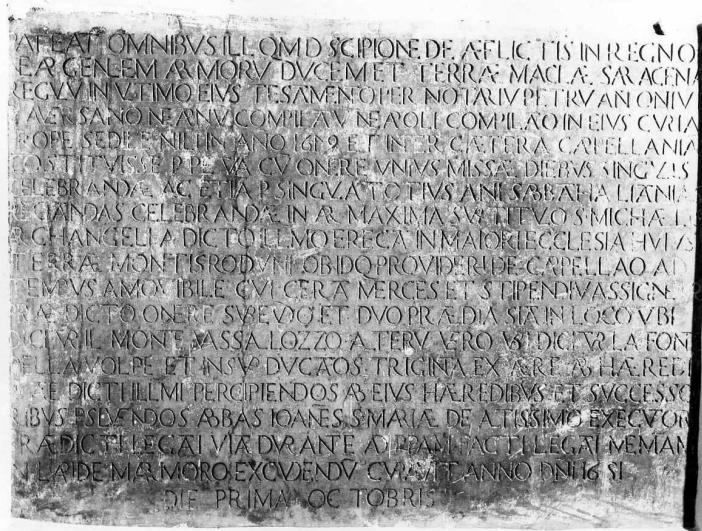 PATEAT OMNIBVS ILL QM D SCIPIONE DE AFLICTIS IN REGNO
GENLEM ARMORV DVCEM ET TERRÆ MACLÆ SARACENA
REGVV IN VTIMO EIVS TESAMENO PER NOTARIV PETRV AN ONIV
AVERSANO NEANV COMPILAV NEAPOLI COMPILAO IN EIVS CVRIA
PROPE SEDILE NILI IN ANO 1619 ET INTER CÆTERA CAPELLANIA
COSTITVISSE PPEVA CV ONERE VNIVS MISSÆ DIEBVS SINGVLIS
CELEBRANDÆ AC ETIA P SINGVLA TOTIVS ANI SABBAHA LIANIA
CELEBRANDÆ IN AR MAXIMA SVB TITVLO S MICHÆLI
ARCHANGELI A DICTO ILLMO ERECA IN MAIORI ECCLESIA HVIVS
TERRÆ MONTISRODVNI OB ID QD PROVIDERI DE CAPELLAO AD
TEMPVS AMOVIBILE CVI CERA MERCES ET STIPENDIV ASSIGNE
PRÆDICTO ONERE SVBEVDO ET DVO PRÆDIA SIA IN LOCO VBI
DICIVR IL MONTE VASSALOZZO ATERV VERO VBI DICIVR LA FON
DELLA VOLPE ET INSVP DVCAOS TRIGINA EX ÆRE AB HÆREDI
DICTI ILLMI PERCIPIENDOS AB EIVS HÆREDIBVS ET SVCCESSO
RIBVS PSLVENDOS ABBAS IOANES S MARIÆ DE ALTISSIMO EXECVOR
PRÆDICTI LEGAI VIA DVRANTE AD PPAM FACTI LEGAI MEMAM
IN LAPIDE MARMORO EXCVDENDV CVRAVIT ANNO DNI 16 51
DIE PRIMA OCTOBRIS